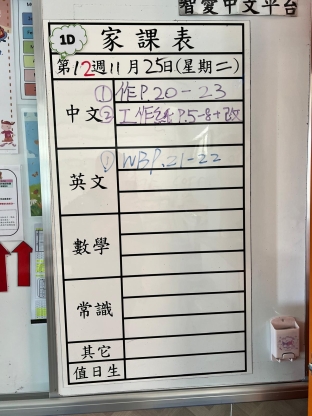 智愛中文平台
1D 家課表
第12週11月25日(星期二)
中文 ①作P.20-23
②工作紙P.5-8+改
英文 ①WBP.21-22
數學
常識
其它
值日生